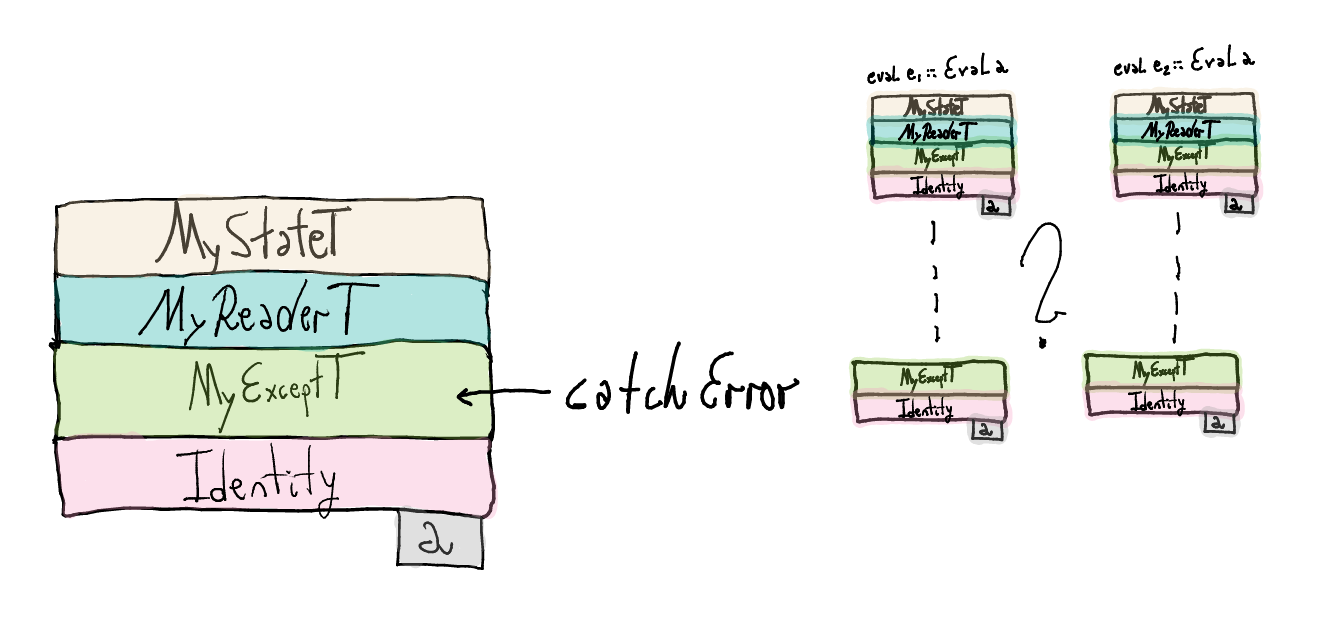 MyStateT
MyReaderT
MyExceptT
Identity
a
catchError
eval e₁ :: Eval a
MyStateT
MyReaderT
MyExceptT
Identity
a
eval e₂ :: Eval a
MyStateT
MyReaderT
MyExceptT
Identity
a
?
MyExceptT
Identity
a
MyExceptT
Identity
a